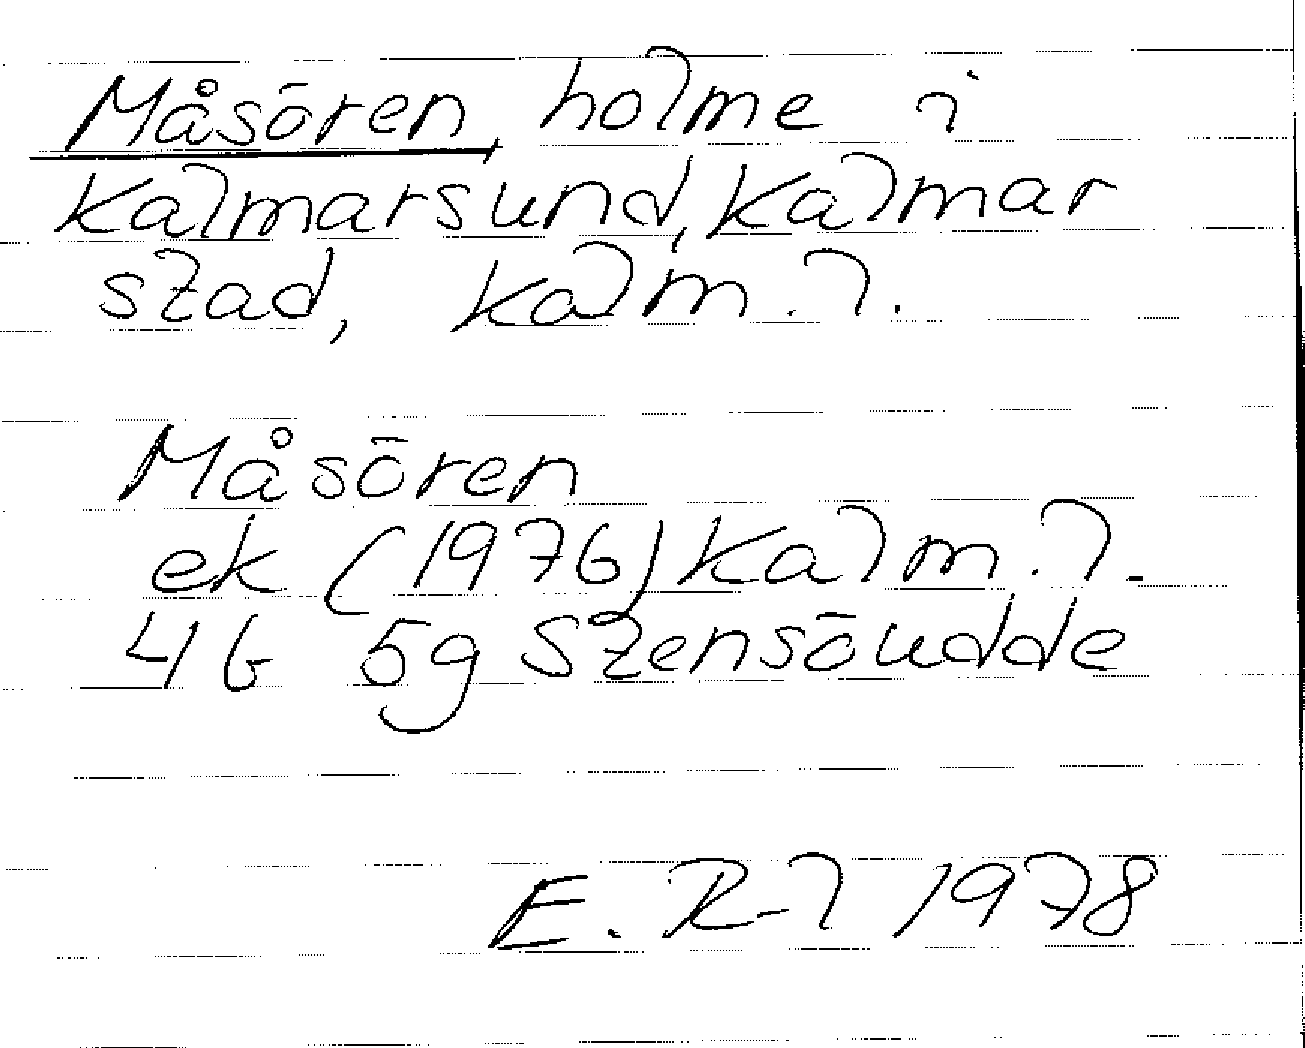 Måsören, holme i
Kalmarsund, Kalmar
stad, Kalm. l.
Måsören
ek (1976) Kalm. l.
4G 5g Stensöudde
E. R-l 1978